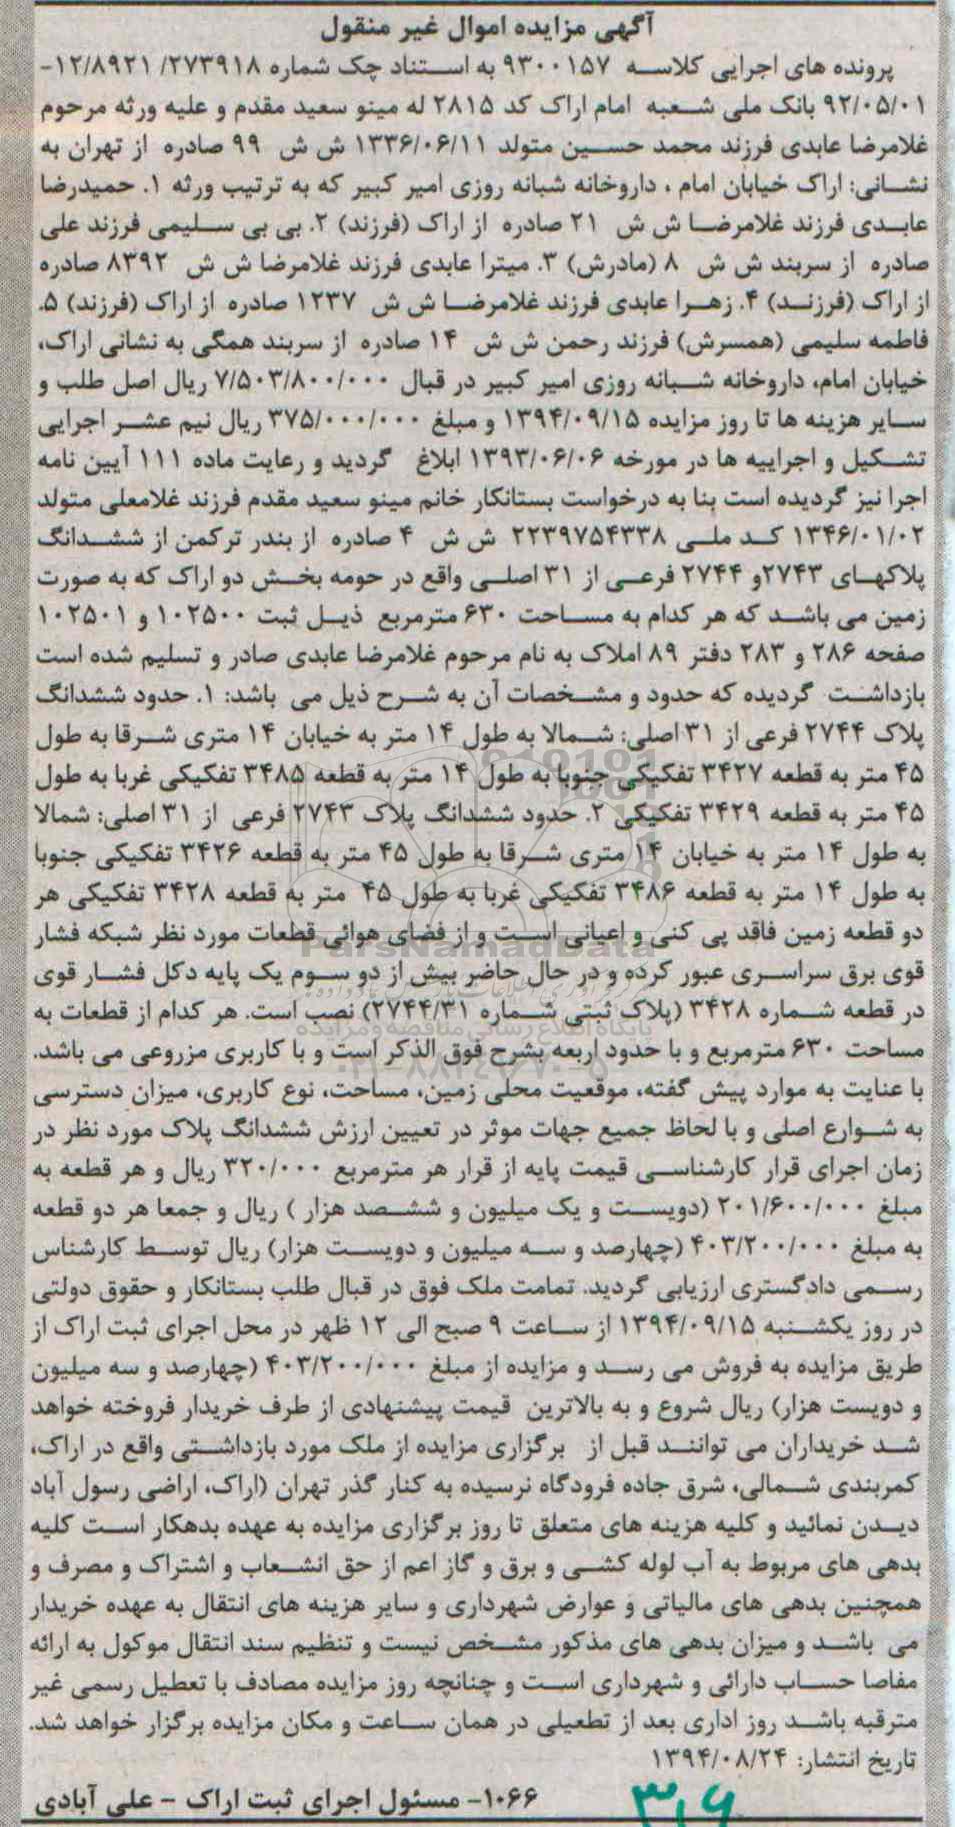 آگهی مزایده اموال غیر منقول
پرونده های اجرایی کلاسه ۹۳۰۰۱۵۷ به استناد چک شماره ۲۷۳۹۱۸/ ۱۲/۸۹۲۱-
۹۲/۰۵/۰۱ بانک ملی شعبه امام اراک کد ۲۸۱۵ له مینو سعید مقدم و علیه ورثه مرحوم
غلامرضا عابدی فرزند محمد حسین متولد ۱۳۳۶/۰۶/۱۱ ش ش ۹۹ صادره از تهران به
نشانی: اراک خیابان امام ، داروخانه شبانه روزی امیر کبیر که به ترتیب ورثه ۱. حمیدرضا
عابدی فرزند غلامرضا ش ش ۲۱ صادره از اراک (فرزند) ۲. بی بی سلیمی فرزند علی
صادره از سربند ش ش ۸ (مادرش) ۳. میترا عابدی فرزند غلامرضا ش ش ۸۳۹۲ صادره
از اراک (فرزند) ۴. زهرا عابدی فرزند غلامرضا ش ش ۱۲۳۷ صادره از اراک (فرزند) ۵.
فاطمه سلیمی (همسرش) فرزند رحمن ش ش ۱۴ صادره از سربند همگی به نشانی اراک،
خیابان امام، داروخانه شبانه روزی امیر کبیر در قبال ۷/۵۰۳/۸۰۰/۰۰۰ ریال اصل طلب و
سایر هزینه ها تا روز مزایده ۱۳۹۴/۰۹/۱۵ و مبلغ ۳۷۵/۰۰۰/۰۰۰ ریال نیم عشر اجرایی
تشکیل و اجراییه ها در مورخه ۱۳۹۳/۰۶/۰۶ ابلاغ گردید و رعایت ماده ۱۱۱ آیین نامه
اجرا نیز گردیده است بنا به درخواست بستانکار خانم مینو سعید مقدم فرزند غلامعلی متولد
۱۳۴۶/۰۱/۰۲ کد ملی ۲۲۳۹۷۵۴۳۳۸ ش ش ۴ صادره از بندر ترکمن از ششدانگ
پلاکهای ۲۷۴۳و ۲۷۴۴ فرعی از ۳۱ اصلی واقع در حومه بخش دو اراک که به صورت
زمین می باشد که هر کدام به مساحت ۶۳۰ مترمربع ذیل ثبت ۱۰۲۵۰۰ و ۱۰۲۵۰۱
صفحه ۲۸۶ و ۲۸۳ دفتر ۸۹ املاک به نام مرحوم غلامرضا عابدی صادر و تسلیم شده است
بازداشت گردیده که حدود و مشخصات آن به شرح ذیل می باشد: ۱. حدود ششدانگ
پلاک ۲۷۴۴ فرعی از ۳۱ اصلی: شمالا به طول ۱۴ متر به خیابان ۱۴ متری شرقا به طول
۴۵ متر به قطعه ۳۴۲۷ تفکیکی جنوبا به طول ۱۴ متر به قطعه ۳۴۸۵ تفکیکی غربا به طول
۴۵ متر به قطعه ۳۴۲۹ تفکیکی ۲. حدود ششدانگ پلاک ۲۷۴۳ فرعی از ۳۱ اصلی: شمالا
به طول ۱۴ متر به خیابان ۱۴ متری شرقا به طول ۴۵ متر به قطعه ۳۴۲۶ تفکیکی جنوبا
به طول ۱۴ متر به قطعه ۳۴۸۶ تفکیکی غربا به طول ۴۵ متر به قطعه ۳۴۲۸ تفکیکی هر
دو قطعه زمین فاقد پی کنی و اعیانی است و از فضای هوائی قطعات مورد نظر شبکه فشار
قوی برق سراسری عبور کرده و در حال حاضر بیش از دو سوم یک پایه دکل فشار قوی
در قطعه شماره ۳۴۲۸ (پلاک ثبتی شماره ۲۷۴۴/۳۱) نصب است. هر کدام از قطعات به
مساحت ۶۳۰ مترمربع و با حدود اربعه بشرح فوق الذکر است و با کاربری مزروعی می باشد.
با عنایت به موارد پیش گفته، موقعیت محلی زمین، مساحت، نوع کاربری، میزان دسترسی
به شوارع اصلی و با لحاظ جمیع جهات موثر در تعیین ارزش ششدانگ پلاک مورد نظر در
زمان اجرای قرار کارشناسی قیمت پایه از قرار هر مترمربع ۳۲۰/۰۰۰ ریال و هر قطعه به
مبلغ ۲۰۱/۶۰۰/۰۰۰ (دویست و یک میلیون و ششصد هزار ) ریال و جمعا هر دو قطعه
به مبلغ ۴۰۳/۲۰۰/۰۰۰ (چهارصد و سه میلیون و دویست هزار) ریال توسط کارشناس
رسمی دادگستری ارزیابی گردید. تمامت ملک فوق در قبال طلب بستانکار و حقوق دولتی
در روز یکشنبه ۱۳۹۴/۰۹/۱۵ از ساعت ۹ صبح الی ۱۲ ظهر در محل اجرای ثبت اراک از
طریق مزایده به فروش می رسد و مزایده از مبلغ ۴۰۳/۲۰۰/۰۰۰ (چهارصد و سه میلیون
و دویست هزار) ریال شروع و به بالاترین قیمت پیشنهادی از طرف خریدار فروخته خواهد
شد خریداران می توانند قبل از برگزاری مزایده از ملک مورد بازداشتی واقع در اراک،
کمربندی شمالی، شرق جاده فرودگاه نرسیده به کنار گذر تهران (اراک، اراضی رسول آباد
دیدن نمائید و کلیه هزینه های متعلق تا روز برگزاری مزایده به عهده بدهکار است کلیه
بدهی های مربوط به آب لوله کشی و برق و گاز اعم از حق انشعاب و اشتراک و مصرف و
همچنین بدهی های مالیاتی و عوارض شهرداری و سایر هزینه های انتقال به عهده خریدار
می باشد و میزان بدهی های مذکور مشخص نیست و تنظیم سند انتقال موکول به ارائه
مفاصا حساب دارائی و شهرداری است و چنانچه روز مزایده مصادف با تعطیل رسمی غیر
مترقبه باشد روز اداری بعد از تطعیلی در همان ساعت و مکان مزایده برگزار خواهد شد.
تاریخ انتشار: ۱۳۹۴/۰۸/۲۴
۱۰۶۶- مسئول اجرای ثبت اراک - علی آبادی
ParsNamadData
پایگاه اطلاع رسانی مناقصه و مزایده